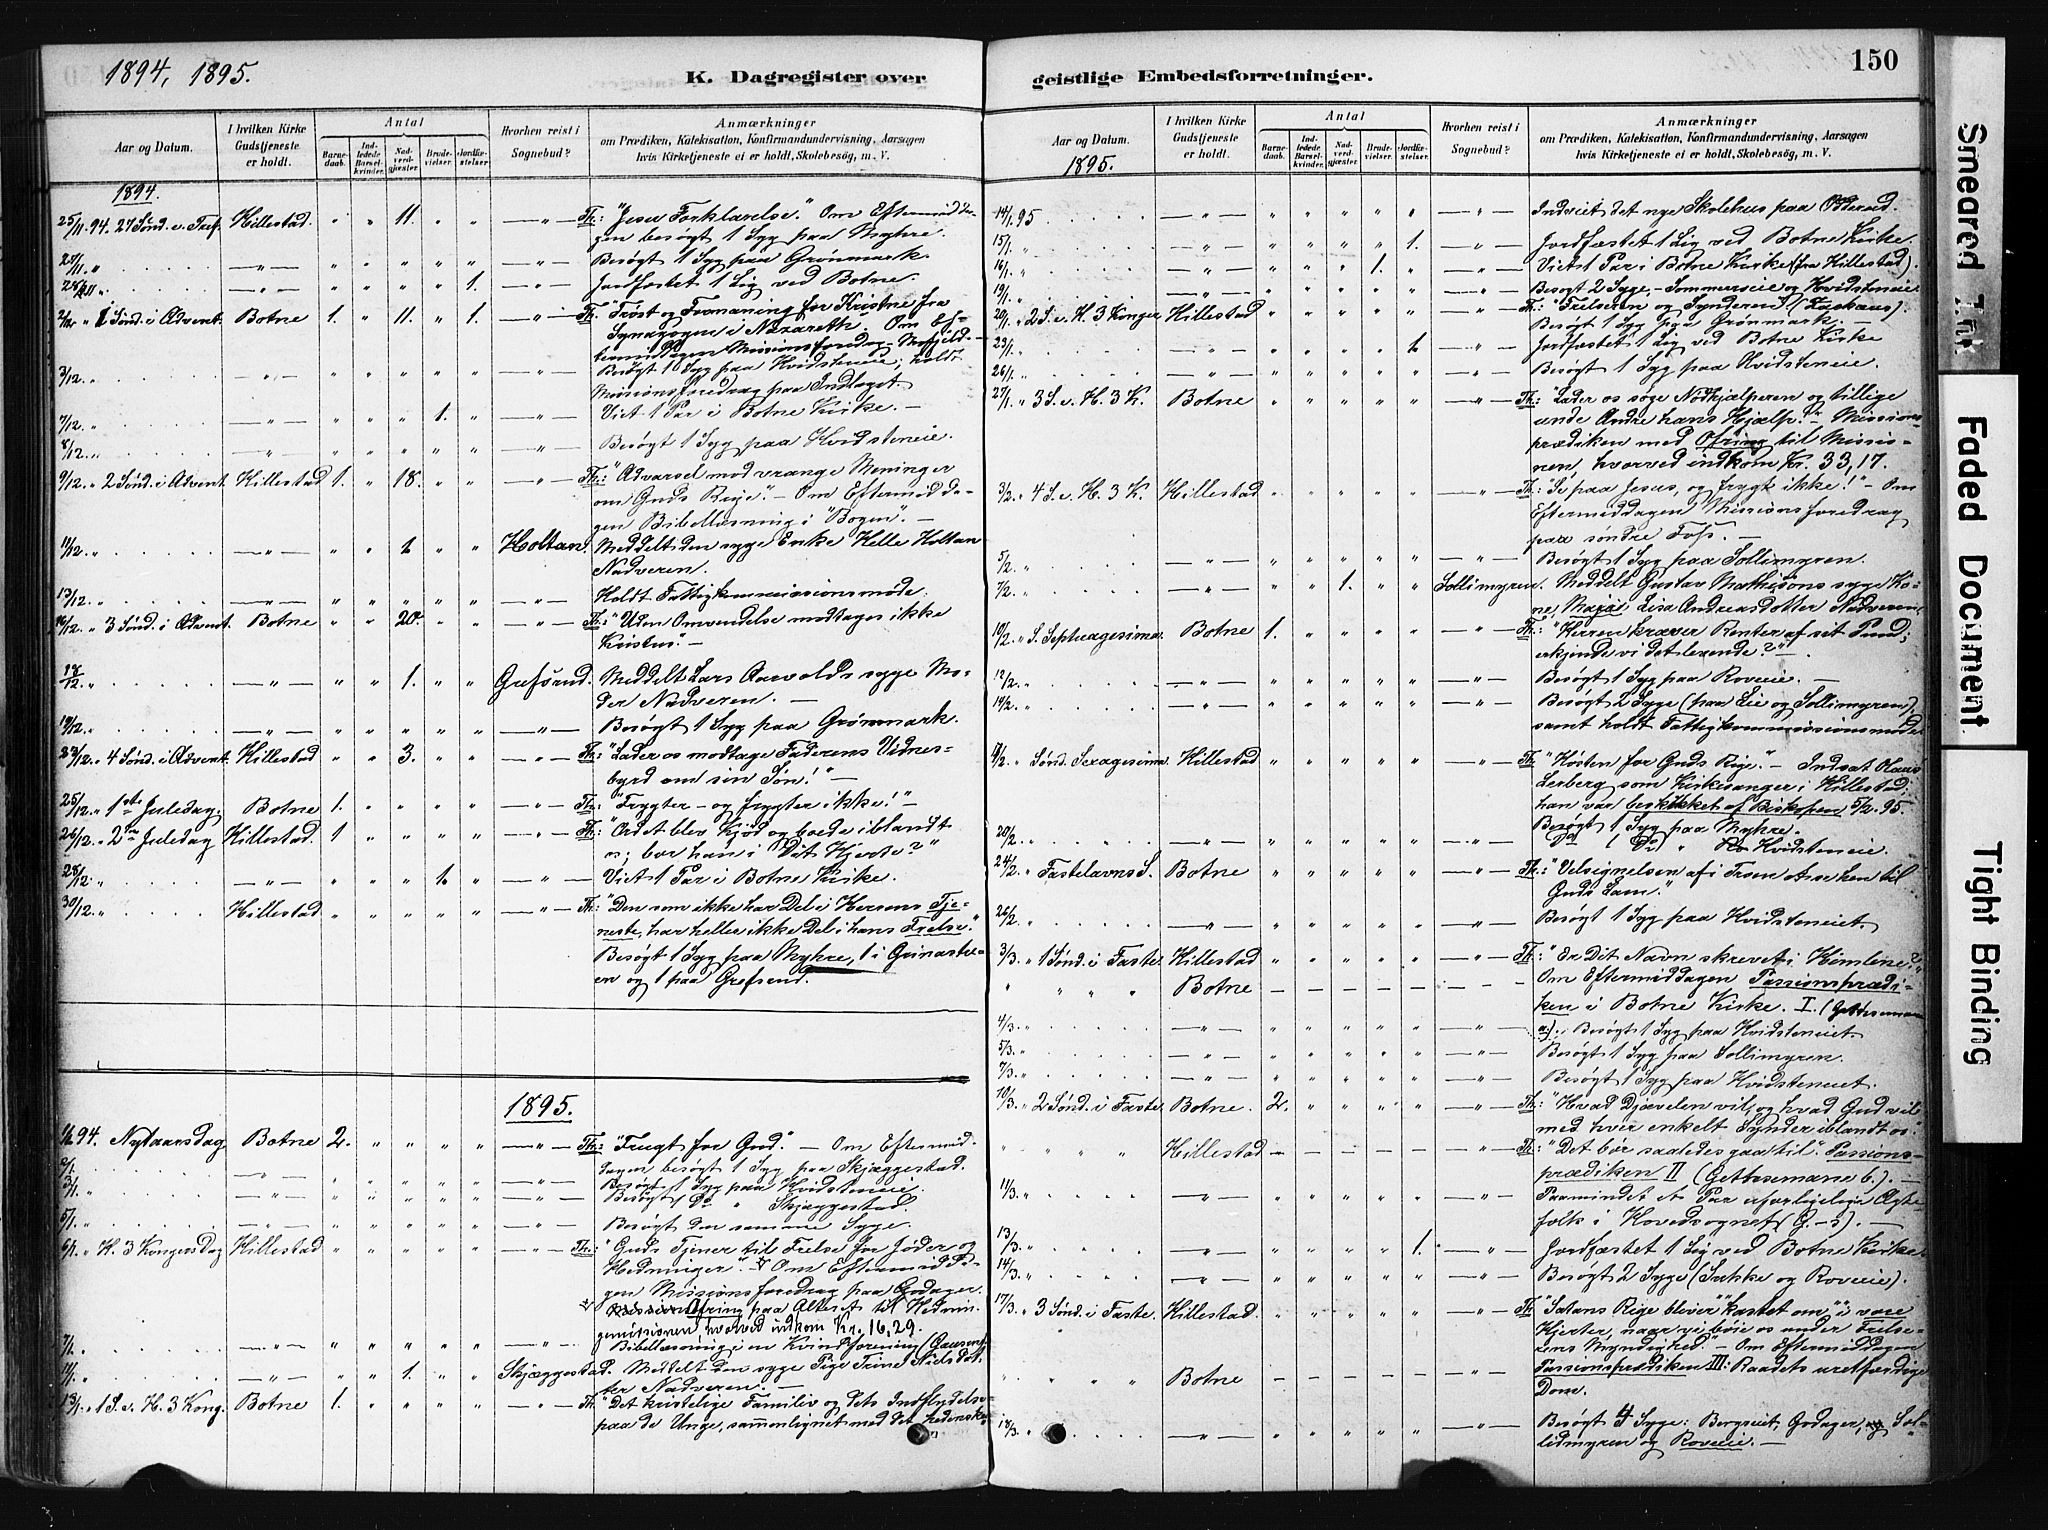 1894, 1895.
K. Dagregister over
Aar og Datum.
I hvilken Kirke Gudstjeneste er holdt.
Antal
Barne-daab.
Ind-ledede Barsel-kvinder.
Nad-verd-gjæster.
Brude-vielser.
Jordfæ-stelser.
Hvorhen reist i Sognebud?
Anmærkninger
om Prædiken, Katekisation, Konfirmandundervisning, Aarsagen
hvis Kirketjeneste ei er holdt, Skolebesøg, m. V.
1894.
25/11. 94. 27 Sønd. e. Tref. Killestad. " " 11. " " —"— Th: "Jesu Forklarelse." Om Eftermidda-
gen besøgt 1 Syg paa Myhre.
"/11 " —"— " " " " " —"— Besøgt 1 Syg paa Grønmark.
28/11 " —"— " " " " 1. —"— Jordfæstet 1 Lig ved Botne.
2/12 " 1 Sønd. i Advent. Botne. 1. " 11. " 1. —"— Th: "Trøst og Formaning for Kristne fra
Synagogen i Nazareth. Om Ef-
termiddagen Missionsforedrag
3/12. " —"— " " " " " —"— Besøgt 1 Syg paa Hvidsteneie; holdt
Missionsforedrag paa Indlaget.
7/12. " —"— " " " 1. " —"— Viet 1 Par i Botne Kirke. —
8/12. " —"— " " " " " —"— Besøgt 1 Syg paa Hvidsteneie.
9/12. " 2 Sønd. i Advent. Killestad 1. " 18. " " —"— Th: "Advarsel mod vrange Meninger
om Guds Rige." — Om Eftermidda-
gen Bibellæsning i "Bogen". —
11/12 " —"— " " 1. " " Holtan. Meddelt den syge Enke Helle Holtan
Nadveren.
13/12 " —"— " " " " " —"— Holdt Fattigkommissionsmøde.
16/12. " 3 Sønd. i Advent. Botne " " 20. " " —"— Th: "Uden Omvendelse modtages ikke
Kristus". —
18/12. " —"— " " 1. " " Grefsrud. Meddelt Lars Aarvolds syge Mo-
der Nadveren. —
19/12. " —"— " " " " " —"— Besøgt 1 Syg paa Grønmark.
23/12. " 4 Sønd. i Advent. Killestad " " 3. " " —"— Th: "Lader os modtage Faderens Vidnes-
byrd om sin Søn!" —
25/12. " 1ste Juledag. Botne 1. " " " " —"— Th: "Frygter — og frygter ikke!" —
26/12 " 2den Juledag Killestad. 1 " " " " —"— Th: "Ordet blev Kjød og boede iblandt
os; bor han i Dit Hjerte?"
28/12 " —"— " " " 1. " —"— Viet 1 Par i Botne Kirke.
30/12. " Killestad " " " " " —"— Th: "Den som ikke har Del i Herrens Tje-
neste, har heller ikke Del i hans Frelse."
Besøgt 1 Syg paa Myhre, 1 i
en og 1 paa Grefsrud.
1895.
1/1. 94. Nytaarsdag Botne 2. " " " " —"— Th: "Frugt for Gud". — Om Eftermid-
dagen besøgt 1 Syg paa Skjæggestad.
2/1. —"— " " " " " —"— Besøgt 1 Syg paa Hvidsteneie.
3/1. " —"— " " " " " —"— Besøgt 1 Do " Skjæggestad.
5/1. " —"— " " " " " —"— Besøgt den samme Syge.
6/1. " H. 3 Kongersdag Killestad " " " " " —"— Th: "Guds Tjener til Frelse for Jøder og
Hedninger". Om Eftermidda-
gen Missionsforedrag paa Godager.
Ofring paa Alteret til Hednin-
gemissionen hvorved indkom Kr. 16,29.
7/1. " —"— " " " " " —"— Bibellæsning i en Kvindeforening
11/1. " —"— " " 1. " " Skjæggestad. Meddelt den syge Pige Trine Nielsdat-
ter Nadveren. —
13/1. " 1 S. e. H. 3 Kong. Botne 1. " " " " —"— Th: "Det kristelige Famililiv og dets Indflydelse
paa de Unge, sammenlignet med det hedenske
geistlige Embedsforretninger.
150
Aar og Datum.
1895.
I hvilken Kirke Gudstjeneste er holdt.
Antal
Barne-daab.
Ind-ledede Barsel-kvinder.
Nad-verd-gjæster.
Brude-vielser.
Jordfæ-stelser.
Hvorhen reist i Sognebud?
Anmærkninger
om Prædiken, Katekisation, Konfirmandundervisning, Aarsagen
hvis Kirketjeneste ei er holdt, Skolebesøg, m. V.
14/1. 95. —"— " " " " " —"— Indviet det nye Skolehus paa Odderød.
15/1. " —"— " " " " 1. —"— Jordfæstet 1 Lig ved Botne Kirke.
16/1. " —"— " " " 1. " —"— Viet 1 Par i Botne Kirke (fra Hillestad).
19/1. " —"— " " " " " —"— Besøgt 2 Syge, — Sommerseie og Hvidsteneie
20/1. " 2 S. e. H. 3 Konger Hillestad " " " " " —"— Th: "Frelseren og Synderen" (Zachæus).
Besøgt 1 Syg paa Grønmark. —
23/1. " —"— " " " " 1. —"— Jordfæstet 1 Lig ved Botne Kirke
26/1. " —"— " " " " " —"— Besøgt 1 Syg paa Hvidsteneie.
27/1. " 3 S. e. H. 3 K. Botne " " " " " —"— Th: "Lader os søge Nødhjælperen og tillige
unde Andre hans Hjælp." Missions-
prædiken med Ofring til Missio-
nen, hvorved indkom Kr. 33,17.
3/2. " 4 S. e. H. 3 K. Hillestad " " " " " —"— Th: "Se paa Jesus, og frygt ikke!" — Om
Eftermiddagen Missionsforedrag
paa søndre Foss. —
5/2. " —"— " " " " " —"— Besøgt 1 Syg paa Sollimyren.
7/2. " —"— " " 1. " " Sollimyren. Meddelt Gustav Mathisons syge Ko-
ne, Maria Lisa Andreasdotter Nadveren
10/2. " S. Septuagesima Botne 1. " " " " —"— Th: "Herren kræver Renter af sit Pund;
erkjende vi det levende?" —
12/2. " —"— " " " " " —"— Besøgt 1 Syg paa Roveie. —
14/2. " —"— " " " " " —"— Besøgt 2 Syge (paa Lie og Sollimyren),
samt holdt Fattigkommissionsmøde.
17/2 " Sønd. Sexagesima Hillestad " " " " " —"— Th: "Høsten for Guds Rige". — Indsat Hans
Lerberg som Kirkesanger i Hillestad;
han var beskikket af Biskopen 5/2. 95.
Besøgt 1 Syg paa Myhre.
20/2. " —"— " " " " " —"— Do 1 Do " Hvidsteneie.
24/2. " Fastelavns S. Botne " " " " " —"— Th: "Velsignelsen af i Troen At se hen til
Guds Lam."
26/2. —"— " " " " " —"— Besøgt 1 Syg paa Hvidsteneiet.
3/3. " 1 Sønd. i Faste. Hillestad " " " " " —"— Th: "Er Dit Navn skrevet i Himlene?"
Om Eftermiddagen Passionsprædi-
" " " " Botne — — — — — —"— ken i Botne Kirke. I. (Gethsemane
4/3. " —"— " " " " " —"— a). Besøgt 1 Syg paa Hvidsteneiet.
5/3. " —"— " " " " " —"— Besøgt 1 Syg paa Sollimyren.
7/3. " —"— " " " " " —"— Besøgt 1 Syg paa Hvidsteneiet.
10/3. " 2 Sønd. i Faste. Botne. 2. " " " " —"— Th: "Hvad Djævelen vil, og hvad Gud vil
med hver enkelt Synder iblandt os".
" " " " Hillestad — — — — — —"— Th: "Det bør saaledes gaa til". Passions-
prædiken II (Gethsemane b.). —
11/3. " —"— " " " " " —"— Paamindet et Par uforligelige Ægte-
folk i Hovedsognet (G.-s). —
13/3. " —"— " " " " 1. —"— Jordfæstet 1 Lig ved Botne Kirke.
14/3. " —"— " " " " " —"— Besøgt 2 Syge (Sukke og Roveie).
17/3. " 3 Sønd. i Faste. Hillestad. " " " " " —"— Th: "Satans Rige bliver "kastet om" i vore
Hjerter, naar vi bøie os under Frelse-
rens Myndighed". — Om Eftermiddagen
" " " " Botne — — — — — —"— Passionsprædiken III: Raadets uretfærdige
Dom.
18/3. " —"— " " " " " —"— Besøgt 4 Syge: Bergseiet, Godager, Sol-
lidmyren og Roveie. —
Smeared Ink
Faded Document
Tight Binding